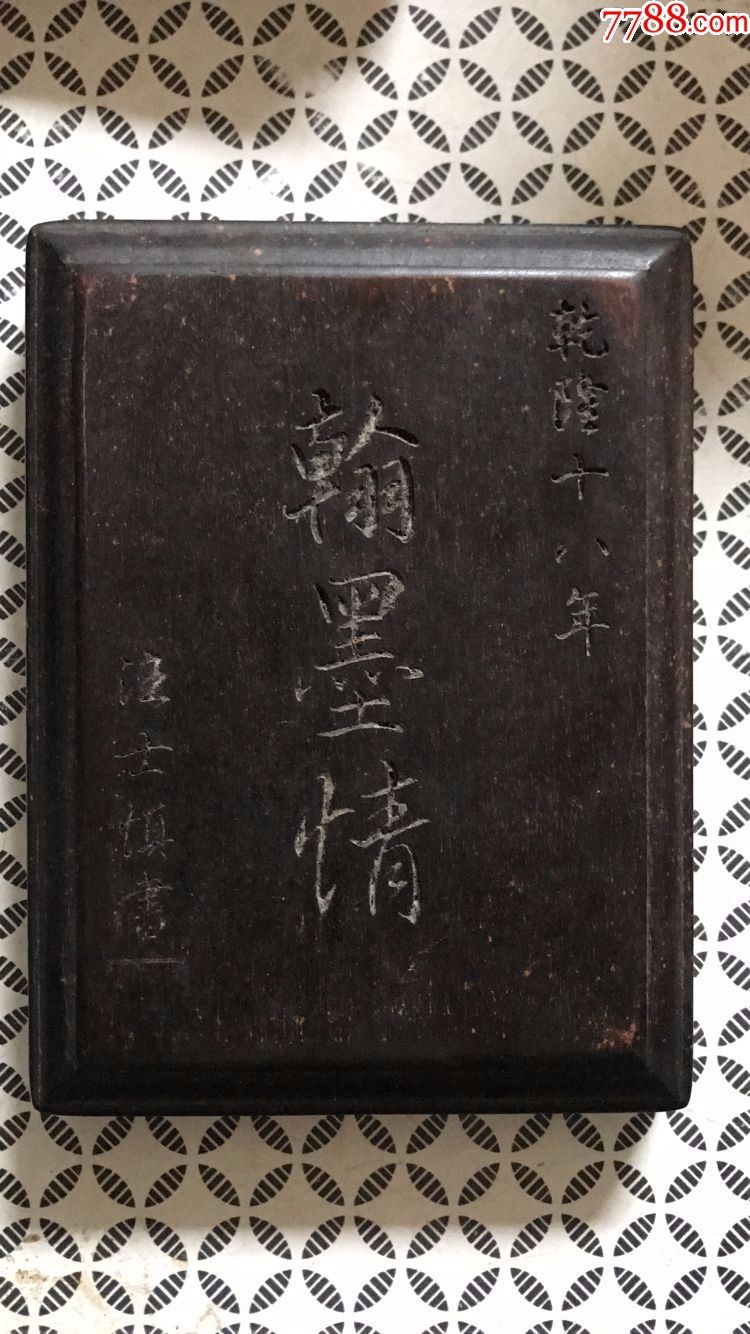 7788.com
乾隆十八年
翰墨情
汪士慎書